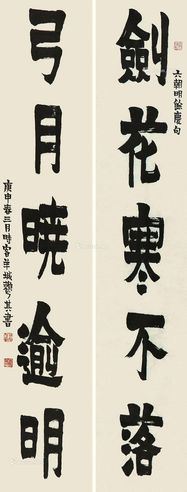 六朝明餘慶句
劍花寒不落
弓月曉逾明
庚申春三月時客羊城
書